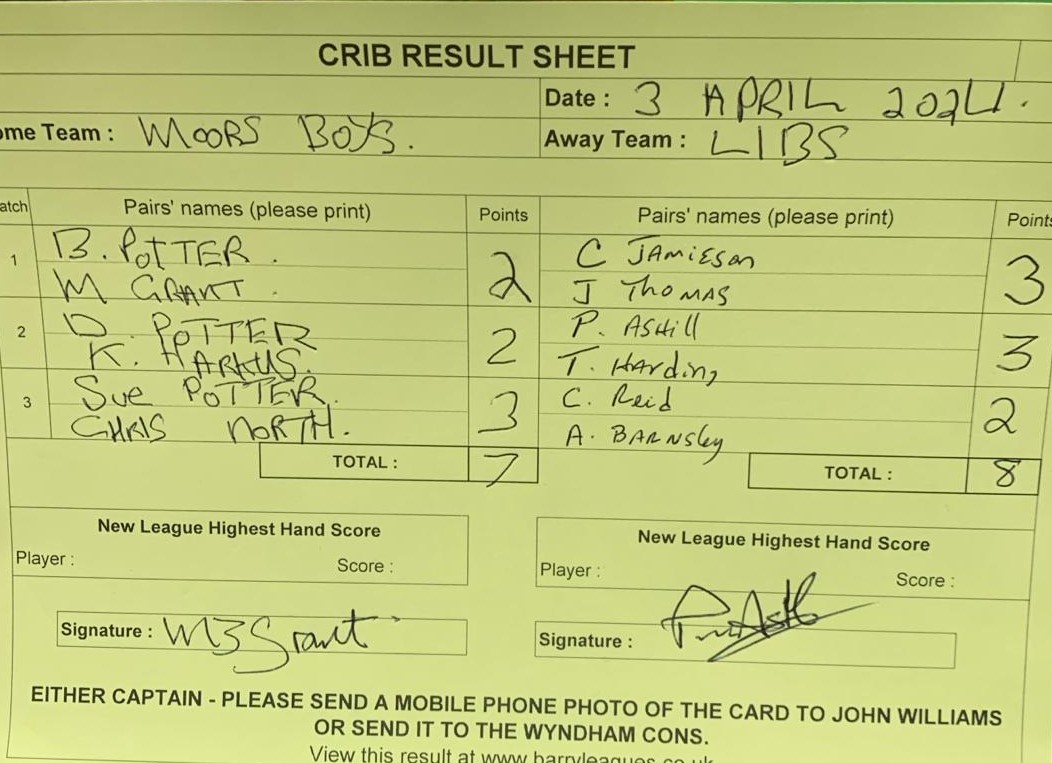 CRIB RESULT SHEET
Date : 3 APRIL 2024.
ome Team : MOORS BOYS.
Away Team : LIBS
atch Pairs' names (please print) Points Pairs' names (please print) Points
1 B. POTTER. 2 C JAMIESON 3
M GRANT. J THOMAS
2 D. POTTER 2 P. ASHILL 3
K. HARKUS. T. HARDING
3 SUE POTTER. 3 C. Reid 2
CHRIS NORTH. A. BARNSLEY
TOTAL : 7 TOTAL : 8
New League Highest Hand Score New League Highest Hand Score
Player : Score : Player : Score :
Signature : Grant Signature :
EITHER CAPTAIN - PLEASE SEND A MOBILE PHONE PHOTO OF THE CARD TO JOHN WILLIAMS
OR SEND IT TO THE WYNDHAM CONS.
View this result at www.barryleagues.co.uk